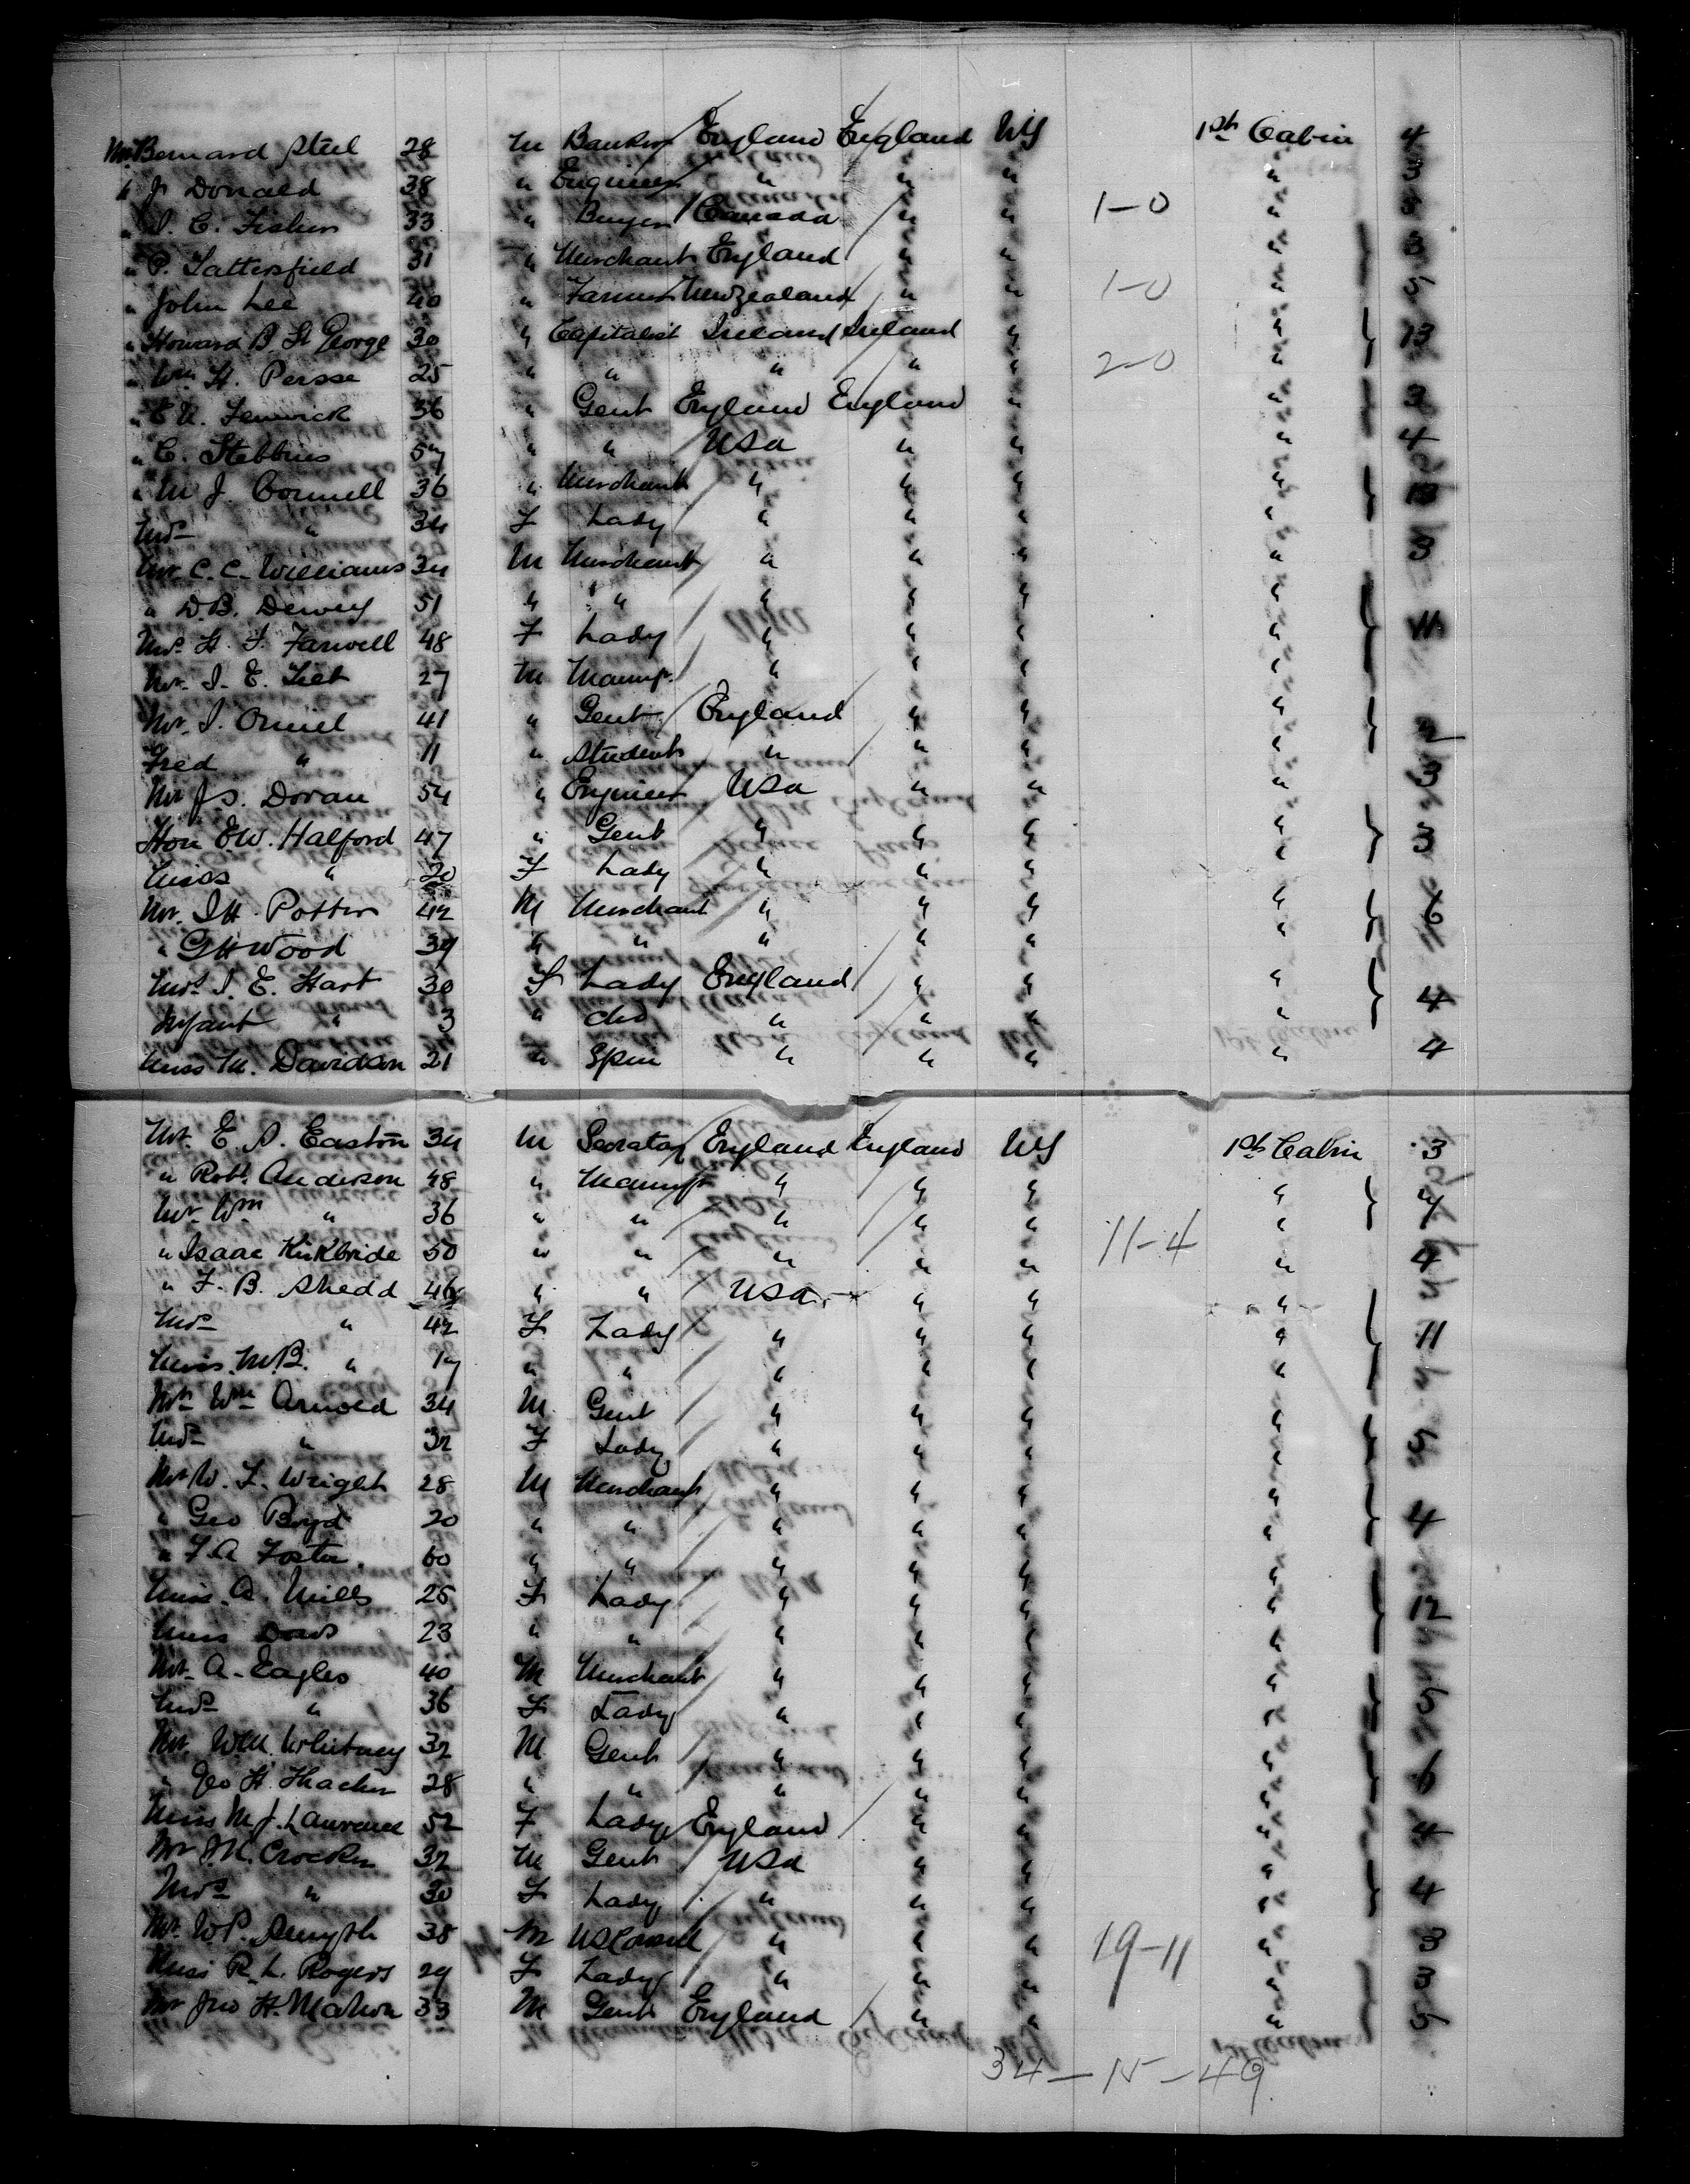 Mr Bernard Steel 28 M Banker England England NY 1st Cabin 4
" J. Donald 38 " Engineer " " " " 3
" J. C. Fisher 33 " Buyer Canada " " 1-0 "
" P. Tattersfield 31 " Merchant England " " " 3
" John Lee 40 " Farmer New Zealand " " 1-0 " 5
" Howard B St George 30 " Capitalist Ireland Ireland " " 13
" Wm H. Persse 25 " " " " " 2-0 "
" E U. Fenwick 36 " Gent England England " " 3
" C. Stebbins 57 " " USA " " " 4
" M J. Connell 36 " Merchant " " " " 13
Mrs " 34 F Lady " " " "
Mr C. C. Williams 34 M Merchant " " " " 3
" D.B. Dewey 51 " " " " " "
Mrs H. F. Farwell 48 F Lady " " " " 11
Mr. I. E. 27 M Manufr. " " " "
Mr. J. 41 " Gent England " " " 2
Fred " 11 " Student " " " "
Mr J. S. Doran 54 " Engineer USA " " " 3
Hon E W. Halford 47 " Gent " " " " 3
Miss " 20 F Lady " " " "
Mr. I H. Potter 42 M Merchant " " " " 6
" G H Wood 39 " " " " " "
Mrs J. E. Hart 30 F Lady England " " " 4
Infant " 3 " chd " " " "
Miss M. Davidson 21 " Spin " " " " 4
Mr. E. S. Easton 34 M Secratay England England NY 1st Cabin 3
" Robt. Anderson 48 " Manufr " " " " 4
Mr Wm " 36 " " " " " "
" Isaac Kirkbride 50 " " " " " 11-4 " 4
" F. B. Shedd 46 " " USA " " "
Mrs " 42 F Lady " " " " 11
Miss. M B. " 17 " " " " " "
Mr Wm Arnold 34 M. Gent " " " "
Mrs " 32 F Lady " " " " 5
Mr W. F. Wright 28 M Merchant " " " "
" Geo Boyd 20 " " " " " " 4
" F A Foster. 60 " " " " " "
Miss. A. Mills 25 F Lady " " " " 12
Miss 23 " " " " " "
Mr. A. Eagles 40 M Merchant " " " "
Mrs " 36 F Lady " " " " 5
Mr W M. Whitney 32 M. Gent " " " "
" Geo H. Thacher 28 " " " " " " 6
Miss M J. Lawrence 52 F Lady England " " " 4
Mr J. H. Crocker 32 M Gent USA " " "
Mrs " 30 F Lady " " " " 4
Mr. W P. Smyth 38 M US Consul " " " 19-11 " 3
Miss R. L. Rogers 29 F Lady " " " " 3
Mr Jno H. Mahon 33 M Gent England " " " 5
34 - 15 - 49